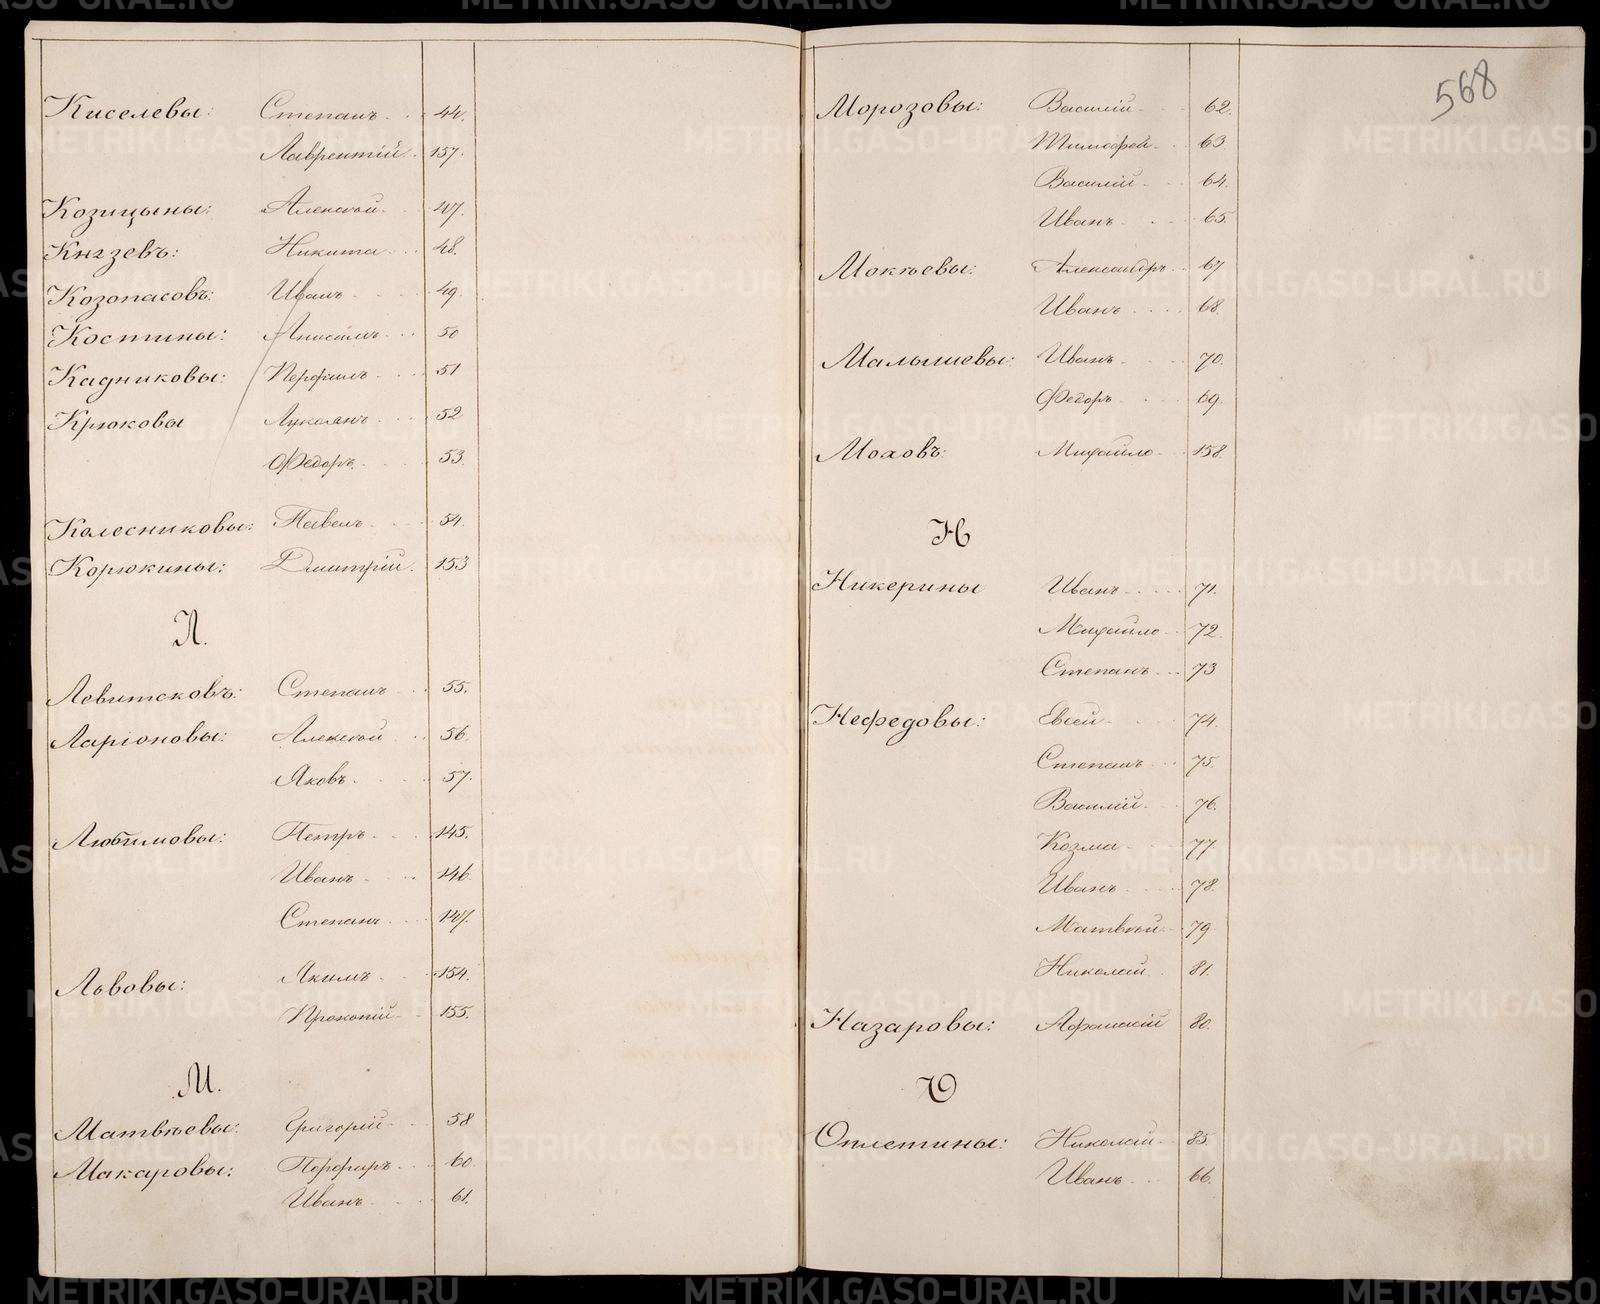 Киселевы: Степанъ 44.
Лаврентiй 157.
Козицыны: Алексѣй 47.
Князевъ: Никита 48.
Козопасовъ: Иванъ 49
Костины: Анисимъ 50
Кадниковы: Перфилъ 51
Крюковы Лукоянъ 52
Ѳедоръ 53.
Колесниковы: Павелъ 54.
Корюкины: Дмитрiй 153
Л.
Левитсковъ: Степанъ 55.
Ларiоновы: Алексѣй 56.
Яковъ 57.
Любимовы: Петръ 145.
Иванъ 146.
Степанъ 147.
Львовы: Якимъ 154.
Прокопiй 155.
М.
Матвѣевы: Григорiй 58
Макаровы: Порфиръ 60
Иванъ 61.
568
Морозовы: Василiй 62.
Тимофей 63
Василiй 64.
Иванъ 65.
Мокѣевы: Александръ 67
Иванъ 68.
Малышевы: Иванъ 70.
Ѳедоръ 69.
Моховъ: Михайло 158.
Н
Никерины Иванъ 71.
Михайло 72.
Степанъ 73
Нефедовы: Евсей 74.
Степанъ 75.
Василiй 76.
Козма 77.
Иванъ 78.
Матвѣй 79.
Николай 81.
Назаровы: Афонасiй 80.
О
Оплетины: Николай 85.
Иванъ 66.
METRIKI.GASO-URAL.RU